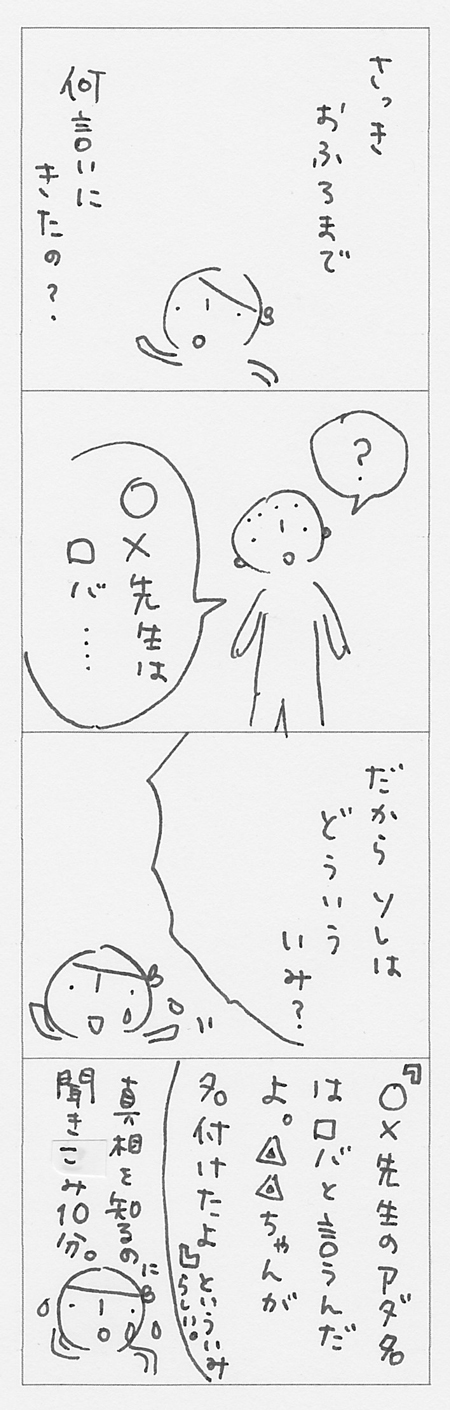 さっき
おふろまで
何言いに
きたの?
?
〇×先生は
ロバ……
だからソレは
どういう
いみ?
『〇×先生のアダ名
はロバと言うんだ
よ。△△ちゃんが
名付けたよ』といういみ
らしい。
真相を知るのに
聞きこみ10分。